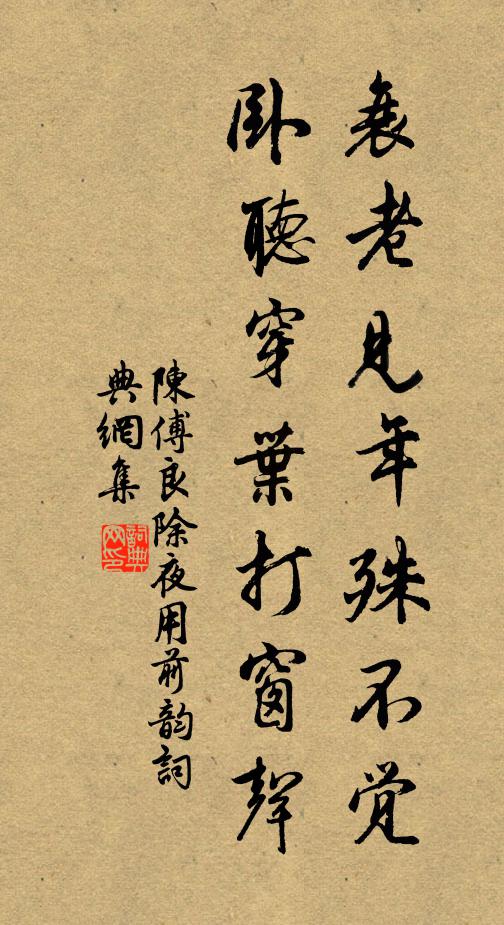 衰老見年殊不觉
臥聽穿葉打窗聲
陳傅良除夜用前韵詞
典網集
詞典
网印